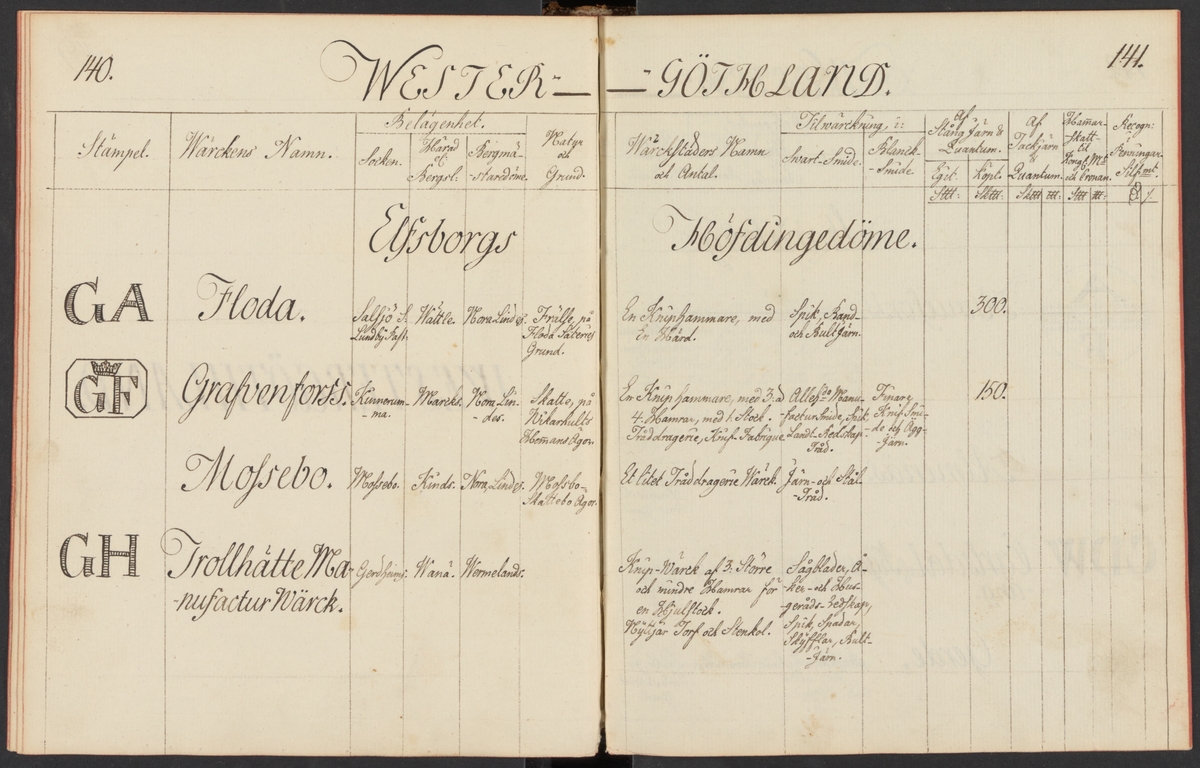 140.
WESTER-
Belägenhet.
Stämpel.
Wärckens Namn.
Socken.
Härad
el.
Bergsl.
Bergmä-
staredöme.
Natur
och
Grund.
Elfsborgs
GA
Floda.
Lundby
Wättle.
Nora Lindes.
Frälse, på
Floda Säteries
Grund.
GF
Grafvenforss.
Kinnerum-
-ma.
Marcks.
Nora Lin-
des.
Skatte, på
Hemmans Ägor.
Mossebo.
Mossebo.
Kinds.
Nora Lindes.
Mossebo
Skattebo Ägor.
GH
Trollhätte Ma-
-nufactur Wärck.
Gerdhems.
Wänä.
Wermelands.
141.
-GÖTHLAND.
Wärckstäders Namn
och Antal.
Tilwärckning, i:
Svart-Smide.
Blanck-
-Smide
Af
Stång Järn &
Quantum.
Eget.
Köpt.
Af
Tackjärn
&
Quantum.
Hammar-
skatt
til
Kongl. Mt
och Cronan.
Recogn:
Penningar.
Silf. mt.
Höfdingedöme.
En Kniphammare, med
En Härd.
Spik, Band
och Bult Järn.
300.
En Kniphammare, med 3. a
4. Hamrar, med 1. Stock.
Tråddragerie, Knif-Fabrique.
Allesta Manu-
factur Smide, Spik,
Landt-Redskap
Tråd.
Finare
Knif Smi-
de och Ägg-
Järn.
150.
Et litet Tråddragerie Wärck.
Järn- och Stål
-Tråd.
Knip-Wärck af 3: Större
och mindre Hamrar för
en Hjulstock.
Nyttjar Torf och Stenkol.
Sågblader, Å-
ker- och Hus-
geråds-redskap,
Spik, Spadar,
Skyfflar, Bult-
-Järn.